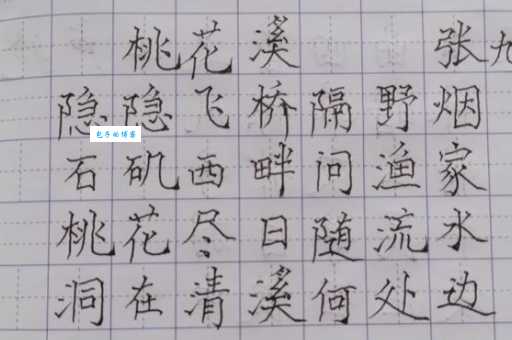 桃花溪 张九
隐隐飞桥隔野烟
石矶西畔问渔家
桃花尽日随流水
洞在清溪何处边
包子的博客